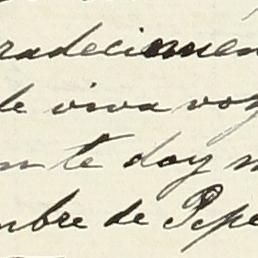 radecimien
de viva voz
n te doy m
mbre de Pepe